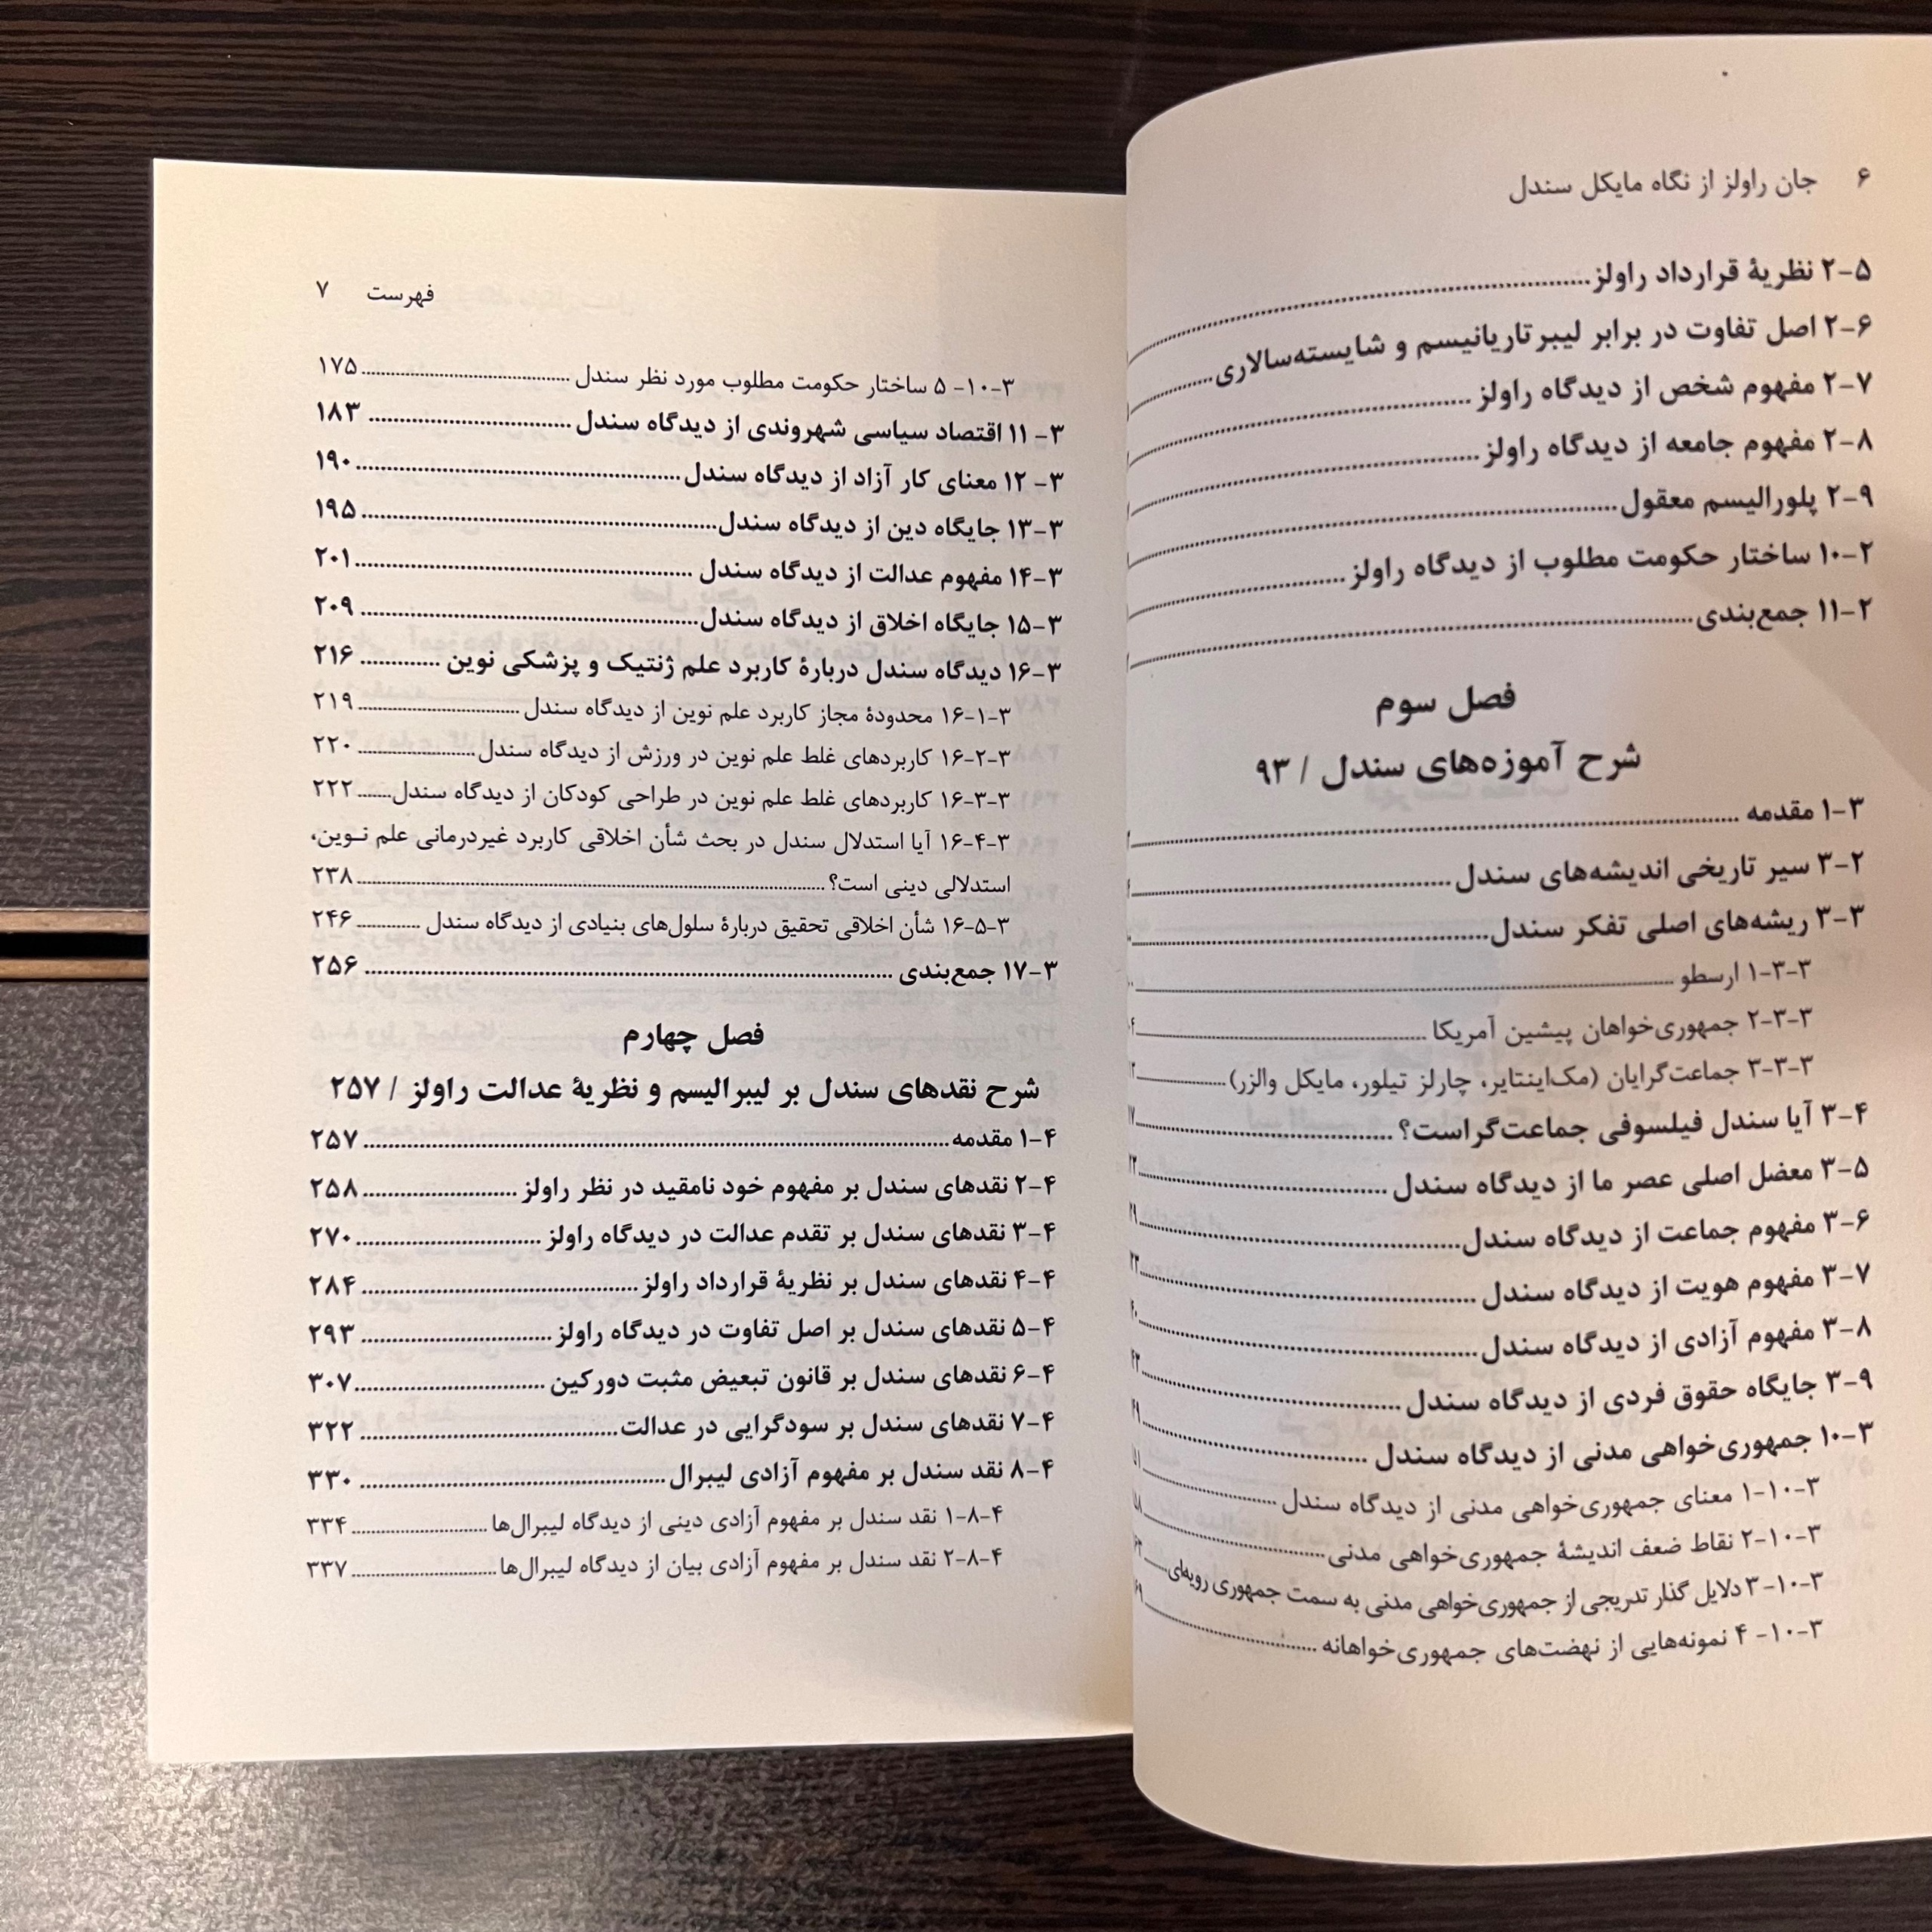 ۶ جان راولز از نگاه مایکل سندل
۲-۵ نظریهٔ قرارداد راولز
۲-۶ اصل تفاوت در برابر لیبرتاریانیسم و شایسته‌سالاری
۲-۷ مفهوم شخص از دیدگاه راولز
۲-۸ مفهوم جامعه از دیدگاه راولز
۲-۹ پلورالیسم معقول
۲-۱۰ ساختار حکومت مطلوب از دیدگاه راولز
۲-۱۱ جمع‌بندی
فصل سوم
شرح آموزه‌های سندل / ۹۳
۳-۱ مقدمه
۳-۲ سیر تاریخی اندیشه‌های سندل
۳-۳ ریشه‌های اصلی تفکر سندل
۳-۳-۱ ارسطو
۳-۳-۲ جمهوری‌خواهان پیشین آمریکا
۳-۳-۳ جماعت‌گرایان (مک‌اینتایر، چارلز تیلور، مایکل والزر)
۳-۴ آیا سندل فیلسوفی جماعت‌گراست؟
۳-۵ معضل اصلی عصر ما از دیدگاه سندل
۳-۶ مفهوم جماعت از دیدگاه سندل
۳-۷ مفهوم هویت از دیدگاه سندل
۳-۸ مفهوم آزادی از دیدگاه سندل
۳-۹ جایگاه حقوق فردی از دیدگاه سندل
۳-۱۰ جمهوری‌خواهی مدنی از دیدگاه سندل
۳-۱۰-۱ معنای جمهوری‌خواهی مدنی از دیدگاه سندل
۳-۱۰-۲ نقاط ضعف اندیشهٔ جمهوری‌خواهی مدنی
۳-۱۰-۳ دلایل گذار تدریجی از جمهوری‌خواهی مدنی به سمت جمهوری رویه‌ای
۳-۱۰-۴ نمونه‌هایی از نهضت‌های جمهوری‌خواهانه
فهرست ۷
۳-۱۰-۵ ساختار حکومت مطلوب مورد نظر سندل ۱۷۵
۳-۱۱ اقتصاد سیاسی شهروندی از دیدگاه سندل ۱۸۳
۳-۱۲ معنای کار آزاد از دیدگاه سندل ۱۹۰
۳-۱۳ جایگاه دین از دیدگاه سندل ۱۹۵
۳-۱۴ مفهوم عدالت از دیدگاه سندل ۲۰۱
۳-۱۵ جایگاه اخلاق از دیدگاه سندل ۲۰۹
۳-۱۶ دیدگاه سندل دربارهٔ کاربرد علم ژنتیک و پزشکی نوین ۲۱۶
۳-۱-۱۶ محدودهٔ مجاز کاربرد علم نوین از دیدگاه سندل ۲۱۹
۳-۲-۱۶ کاربردهای غلط علم نوین در ورزش از دیدگاه سندل ۲۲۰
۳-۳-۱۶ کاربردهای غلط علم نوین در طراحی کودکان از دیدگاه سندل ۲۲۲
۳-۴-۱۶ آیا استدلال سندل در بحث شأن اخلاقی کاربرد غیردرمانی علم نوین،
استدلالی دینی است؟ ۲۳۸
۳-۵-۱۶ شأن اخلاقی تحقیق دربارهٔ سلول‌های بنیادی از دیدگاه سندل ۲۴۶
۳-۱۷ جمع‌بندی ۲۵۶
فصل چهارم
شرح نقدهای سندل بر لیبرالیسم و نظریهٔ عدالت راولز / ۲۵۷
۴-۱ مقدمه ۲۵۷
۴-۲ نقدهای سندل بر مفهوم خود نامقید در نظر راولز ۲۵۸
۴-۳ نقدهای سندل بر تقدم عدالت در دیدگاه راولز ۲۷۰
۴-۴ نقدهای سندل بر نظریهٔ قرارداد راولز ۲۸۴
۴-۵ نقدهای سندل بر اصل تفاوت در دیدگاه راولز ۲۹۳
۴-۶ نقدهای سندل بر قانون تبعیض مثبت دورکین ۳۰۷
۴-۷ نقدهای سندل بر سودگرایی در عدالت ۳۲۲
۴-۸ نقد سندل بر مفهوم آزادی لیبرال ۳۳۰
۴-۸-۱ نقد سندل بر مفهوم آزادی دینی از دیدگاه لیبرال‌ها ۳۳۴
۴-۸-۲ نقد سندل بر مفهوم آزادی بیان از دیدگاه لیبرال‌ها ۳۳۷